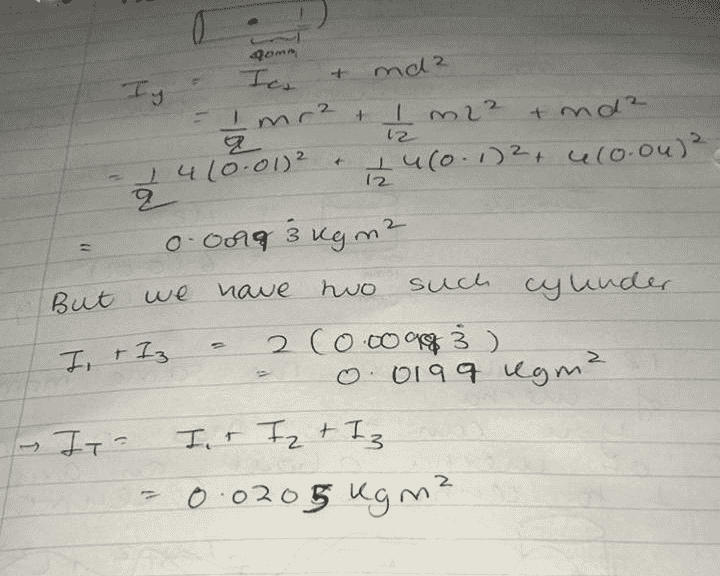 40mm
Iy = Icz + md²
= 1/2 mr² + 1/12 ml² + md²
= 1/2 4(0.01)² + 1/12 4(0.1)² + 4(0.04)²
= 0.0099 3̇ kgm²
But we have two such cylinder
I₁ + I₃ = 2 (0.0099 3̇)
= 0.0199 kgm²
→ I_T = I₁ + I₂ + I₃
= 0.0205 kgm²